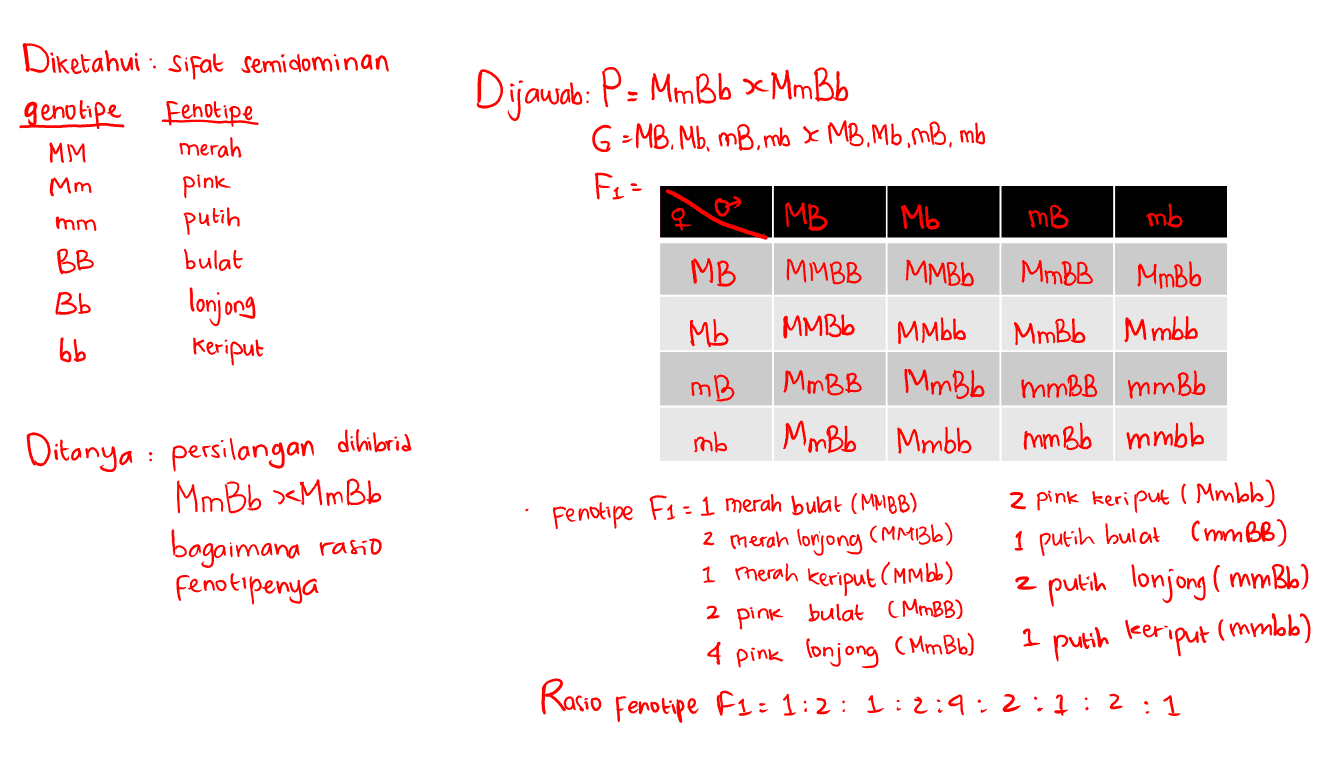 Diketahui : sifat semidominan
genotipe Fenotipe
MM merah
Mm pink
mm putih
BB bulat
Bb lonjong
bb keriput
Ditanya : persilangan dihibrid
MmBb x MmBb
bagaimana rasio
Fenotipenya
Dijawab: P = MmBb x MmBb
G = MB, Mb, mB, mb x MB, Mb, mB, mb
F1 =
♀ ♂ MB Mb mB mb
MB MMBB MMBb MmBB MmBb
Mb MMBb MMbb MmBb Mmbb
mB MmBB MmBb mmBB mmBb
mb MmBb Mmbb mmBb mmbb
Fenotipe F1 = 1 merah bulat (MMBB)
2 merah lonjong (MMBb)
1 merah keriput (MMbb)
2 pink bulat (MmBB)
4 pink lonjong (MmBb)
2 pink keriput (Mmbb)
1 putih bulat (mmBB)
2 putih lonjong (mmBb)
1 putih keriput (mmbb)
Rasio Fenotipe F1 = 1 : 2 : 1 : 2 : 4 : 2 : 1 : 2 : 1